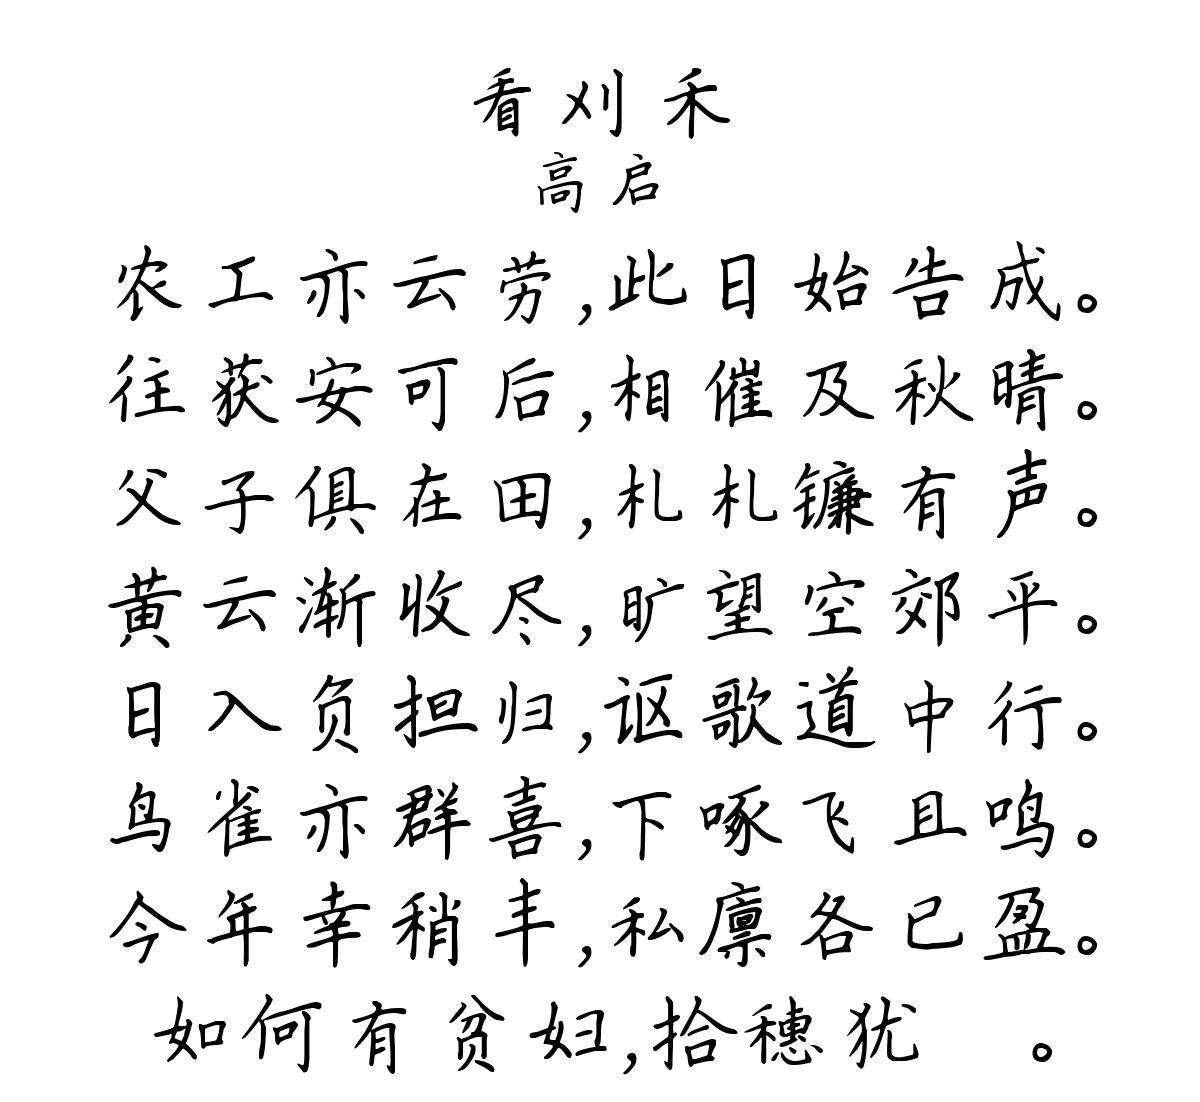 看刈禾
高启
农工亦云劳,此日始告成。
往获安可后,相催及秋晴。
父子俱在田,札札镰有声。
黄云渐收尽,旷望空郊平。
日入负担归,讴歌道中行。
鸟雀亦群喜,下啄飞且鸣。
今年幸稍丰,私廪各已盈。
如何有贫妇,拾穗犹 。